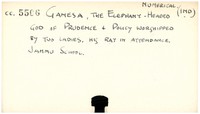 NUMERICAL
CC. 5586 GANESA, THE ELEPHANT-HEADED (IND)
GOD OF PRUDENCE & POLICY WORSHIPPED
BY TWO LADIES, HIS RAT IN ATTENDANCE.
JAMMU SCHOOL.